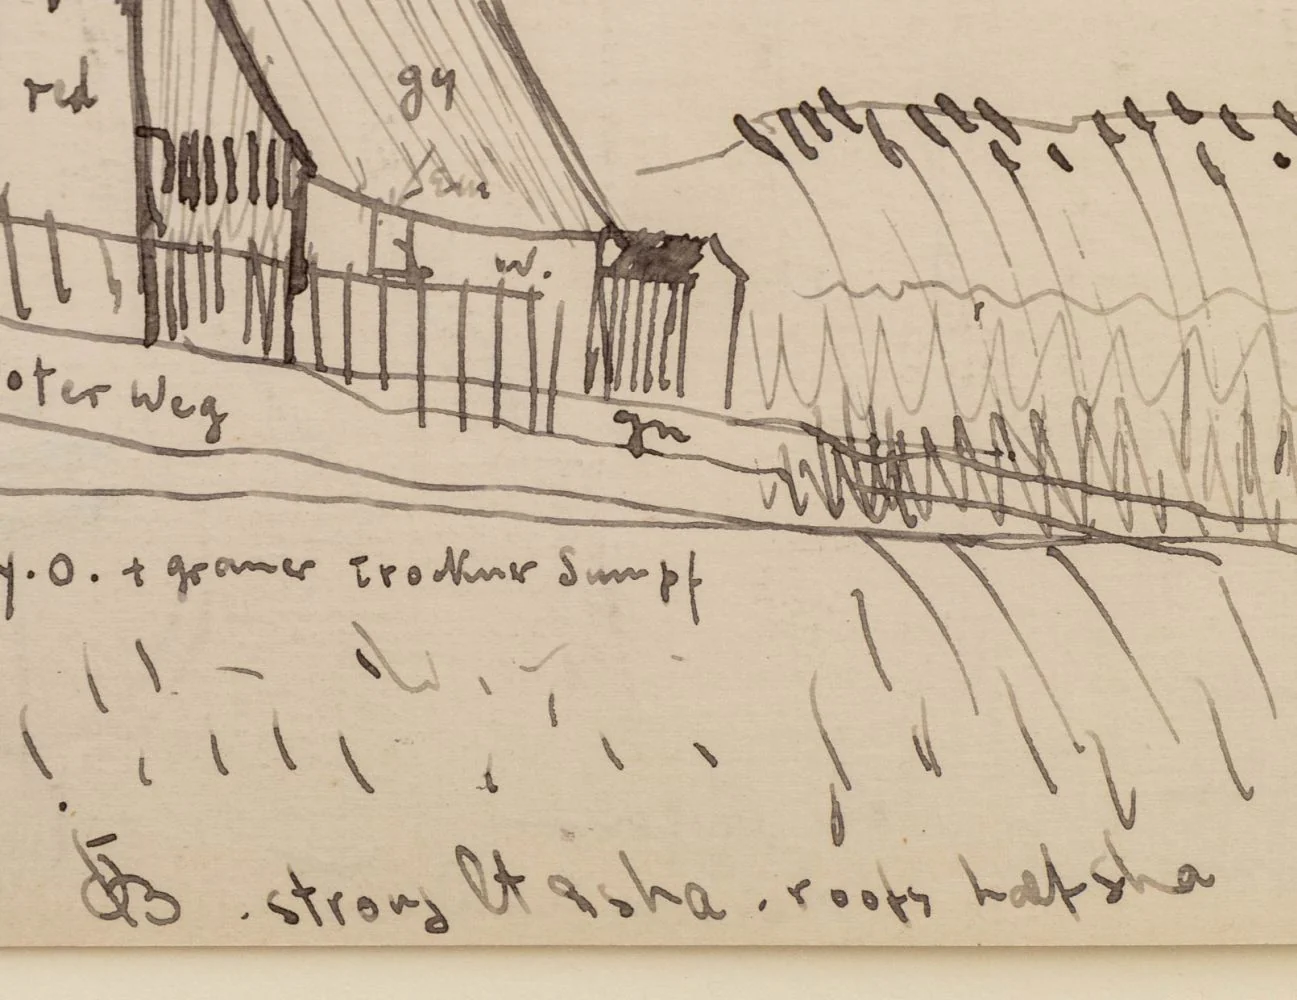 red
gy
w.
oter Weg
gn
y. O. + grauer trockner Sumpf
. strong lt & sha . roofs half sha